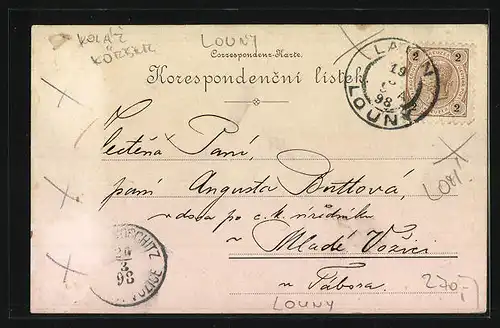 KOLÁŘ
KÖRBER
LOUNY
Correspondenz-Karte.
Korespondenční lístek
LAUN
19
98
LOUNY
2 2
2 2
Její
ctěná Paní,
paní Augusta Buttová,
vdova po c. k. úředníku
v
Mladé Vožici
u Tábora.
LOUNY
270,-
98